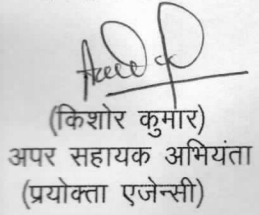 (किशोर कुमार)
अपर सहायक अभियंता
(प्रयोक्ता एजेन्सी)